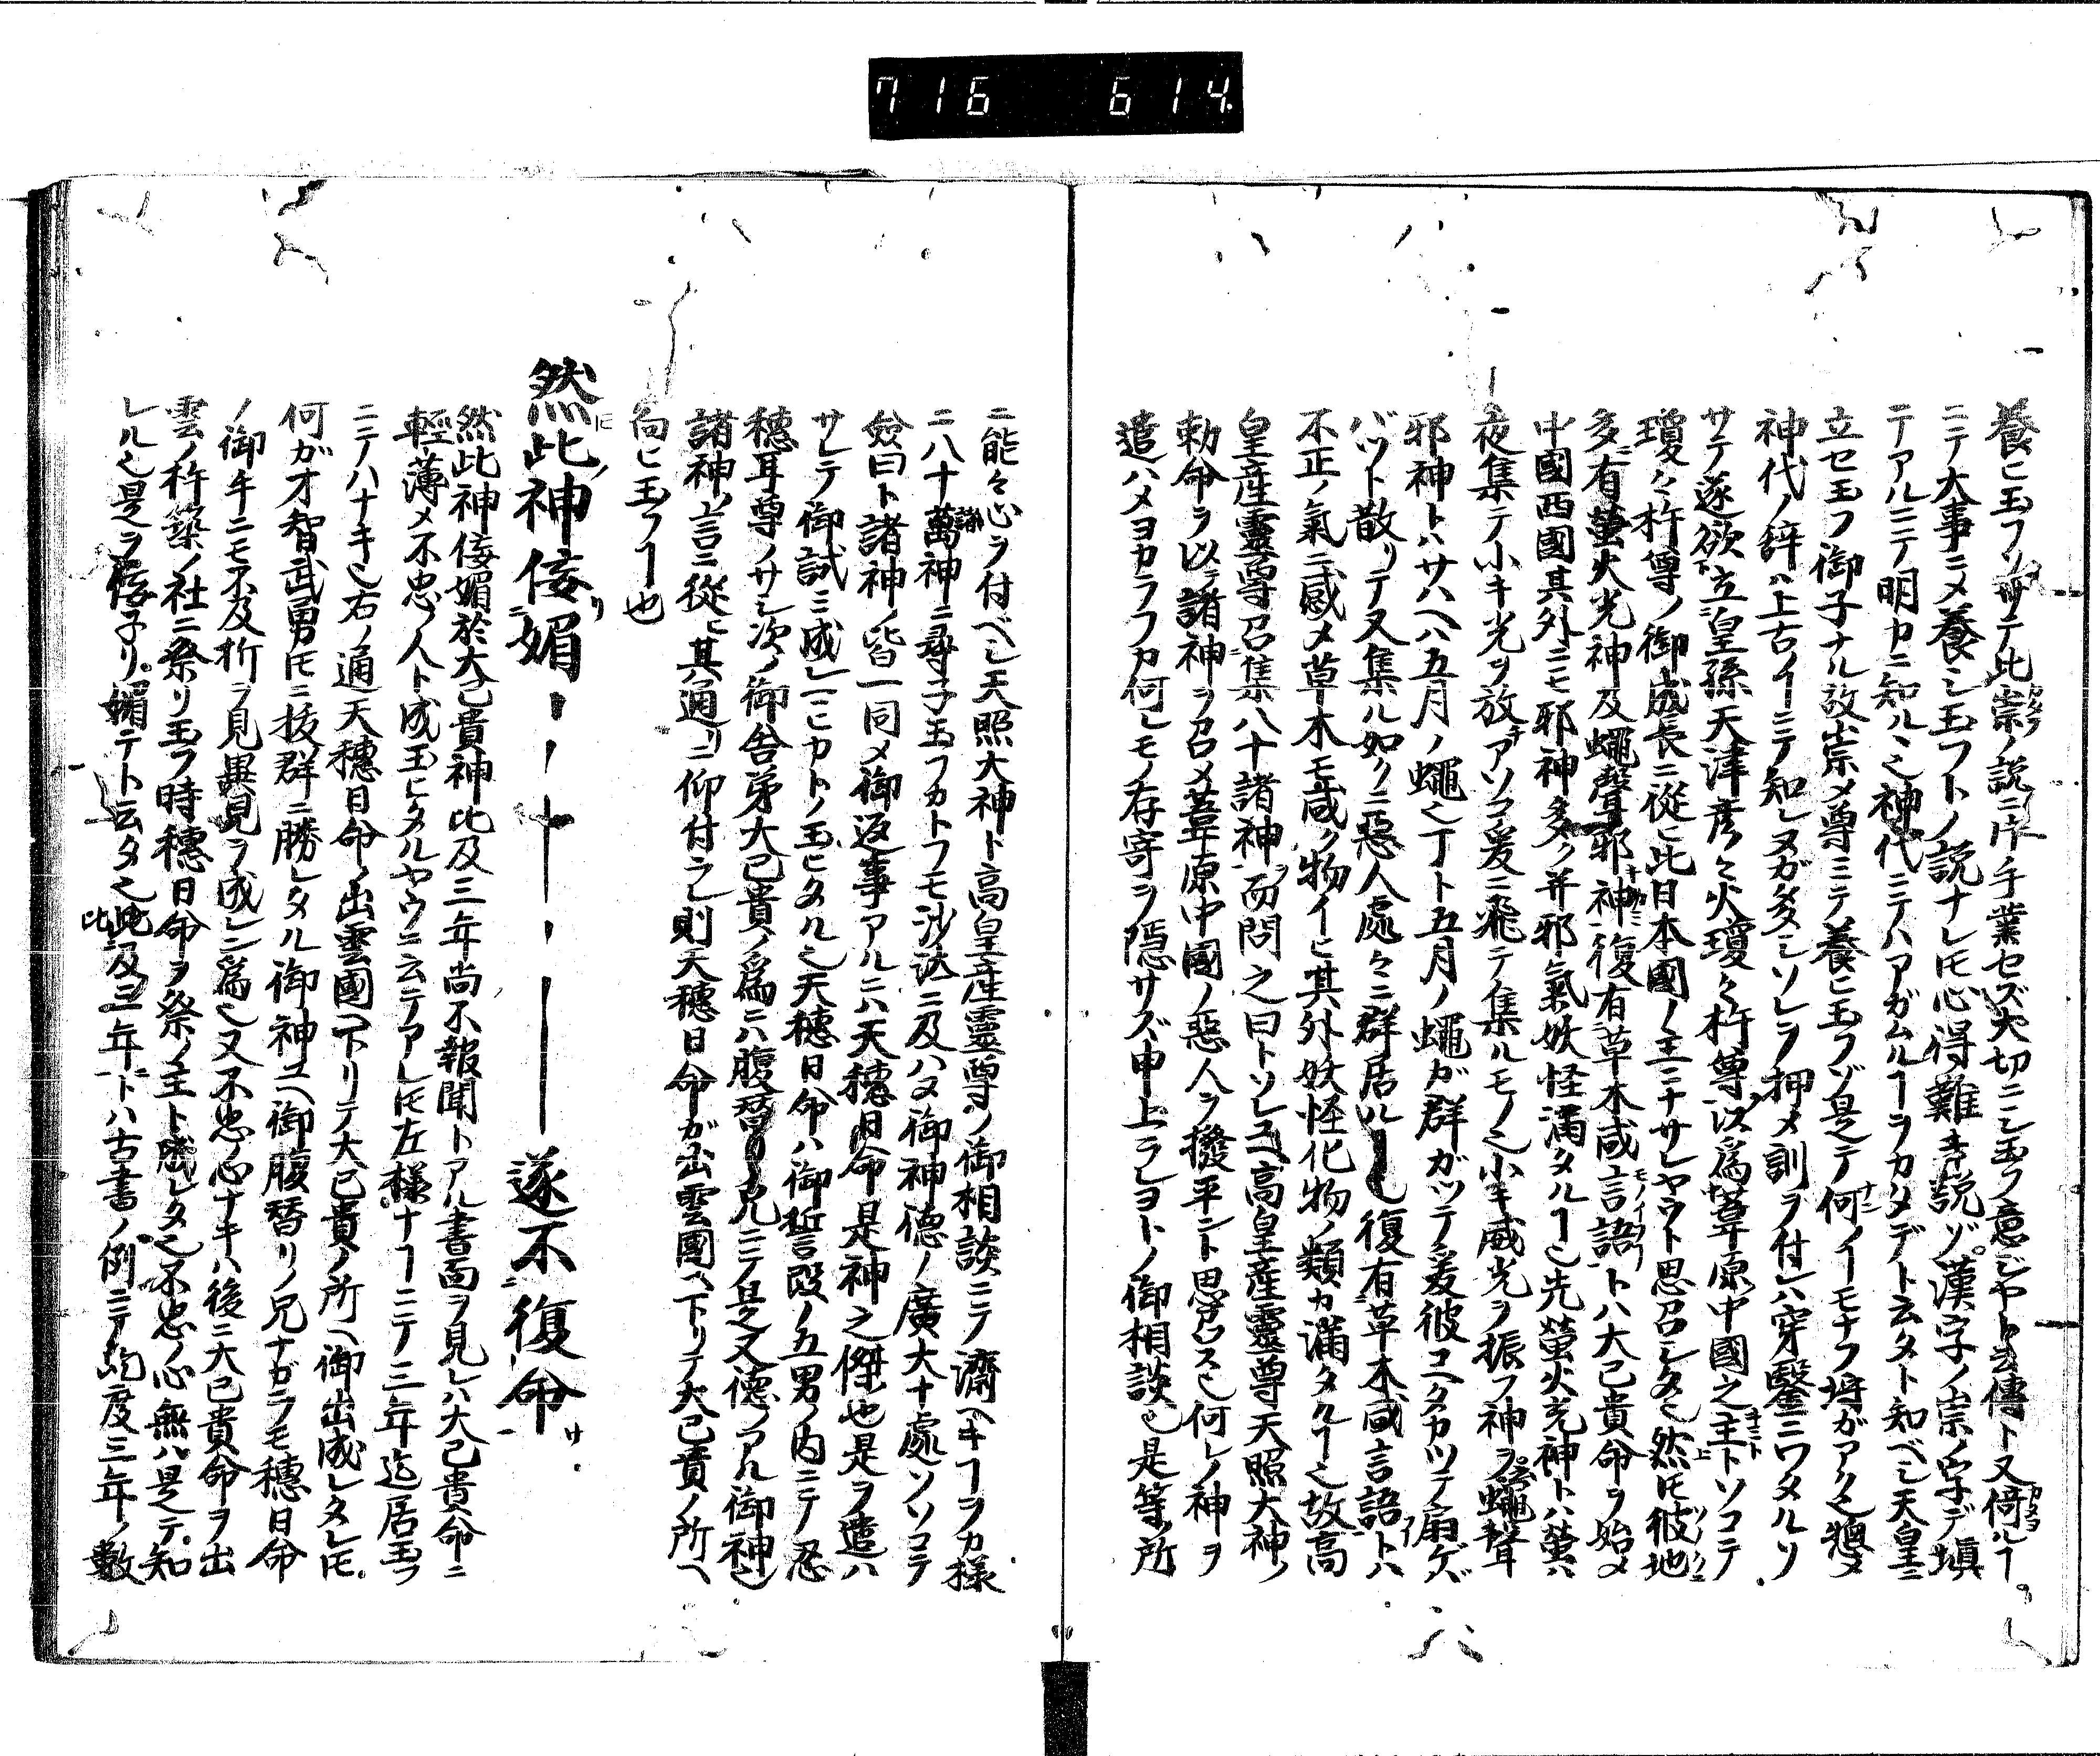 716 614
養ヒ玉フソ㪽テ此崇ノ説ニ片手業セズ大切ニシ玉フ意ジヤト云傳ト又倚ルヿ
ニテ大事ニメ養シ玉フトノ説ナレ𪜈心得難キ説ゾ漢字ノ崇ノ字デ塡
テアルニテ明カニ知ルヽ之神代ニテハアガムルヿヲカタデト云タト知ベシ天皇ニ
立セ玉フ御子ナル故崇メ尊ミテ養ヒ玉フゾ是テ何ノイーモナフ埒ガアク也
神代ノ辞ハ上古ノイーニテ知レヌガ多シソレヲ押メ訓ヲ付レハ穿鑿ニワタルソ
サテ遂欲立皇孫天津彦々火瓊々杵尊以爲葦原中國之主トソコテ
瓊々杵尊ノ御成長ニ從ヒ此日本國ノ主ニナサレヤウト思召レタ也然𪜈彼地
多有螢火光神及蠅聲邪神復有草木咸言語トハ大己貴命ヲ始メ
中國西國其外ニモ邪神多ク并邪氣妖怪滿タルヿ也先螢火光神トハ螢ハ
夜集テ小キ光ヲ放チアソコ爰ニ飛テ集ルモノ之小キ威光ヲ振フ神ヲ云蠅聲
邪神トハサハヘハ五月ノ蠅之丁ト五月ノ蠅ガ群ガツテ爰彼コニタカツテ扇ゲバ
バツト散リテ又集ル如クニ惡人處々ニ群居ルヿ也復有草木咸言語トハ
不正ノ氣ニ感メ草木モ咸ク物イヒ其外妖怪化物ノ類カ滿タルヿ之故高
皇産靈尊召集八十諸神而問之曰トソレユヘ高皇産靈尊天照大神ノ
勅命ヲ以テ諸神ヲ召メ葦原中國ノ惡人ヲ撥平ント思召ス也何レノ神ヲ
遣ハメヨカラフカ何レモノ存寄ヲ隱サズ申上ラレヨトノ御相談也是等ノ所
ニ能々心ヲ付ベシ天照大神ト高皇産靈尊ノ御相談ニテ濟ヘキヿヲカ樣
ニ八十萬諸神ニ尋子玉フカトフモ沙汰ニ及ハヌ御神德ノ廣大ナ處ソソコテ
僉曰ト諸神ノ皆一同メ御返事アルニハ天穗日命是神之傑也是ヲ遣ハ
サレテ御試ニ成レ一ヽカトノ玉ヒタル之天穗日命ハ御誓段ノ五男ノ内ニテ忍
穗耳尊ノサシ次ノ御舎弟大己貴ノ爲ニハ腹替リノ兄ニテ是又德ノアル御神也
諸神ノ言ニ從ヒ其通リニ仰付ラレ則天穗日命ガ出雲國ヘ下リテ大己貴ノ所ヘ
向ヒ玉フヿ也
然𪜈此ノ神佞リ媚ーーー十ーーー遂不復命サ
然此神佞媚於大己貴神比及三年尚不報聞トアル書面ヲ見レハ大己貴命ニ
輕薄メ不忠ノ人ト成玉ヒタルヤウニ云テアレ𪜈左様ナヿニテ三年迄居玉フ
ニテハナキ也右ノ通天穗日命ノ出雲國ヘ下リテ大己貴ノ所ヘ御出成レタレ𪜈
何ガ才智武勇𪜈ニ抜群ニ勝レタル御神ユヘ御腹替リノ兄ナガラモ穗日命
ノ御手ニモ不及折ヲ見異見ヲ成レン爲也又不忠ノ心ナキハ後ニ大己貴命ヲ出
雲ノ杵築ノ社ニ祭リ玉フ時穗日命ヲ祭ノ主ト成レタ之不忠ノ心無ハ是テ知
レル之是ヲ佞子リ媚テト云タ之比及三年トハ古書ノ例ニテ幾度三年ノ數